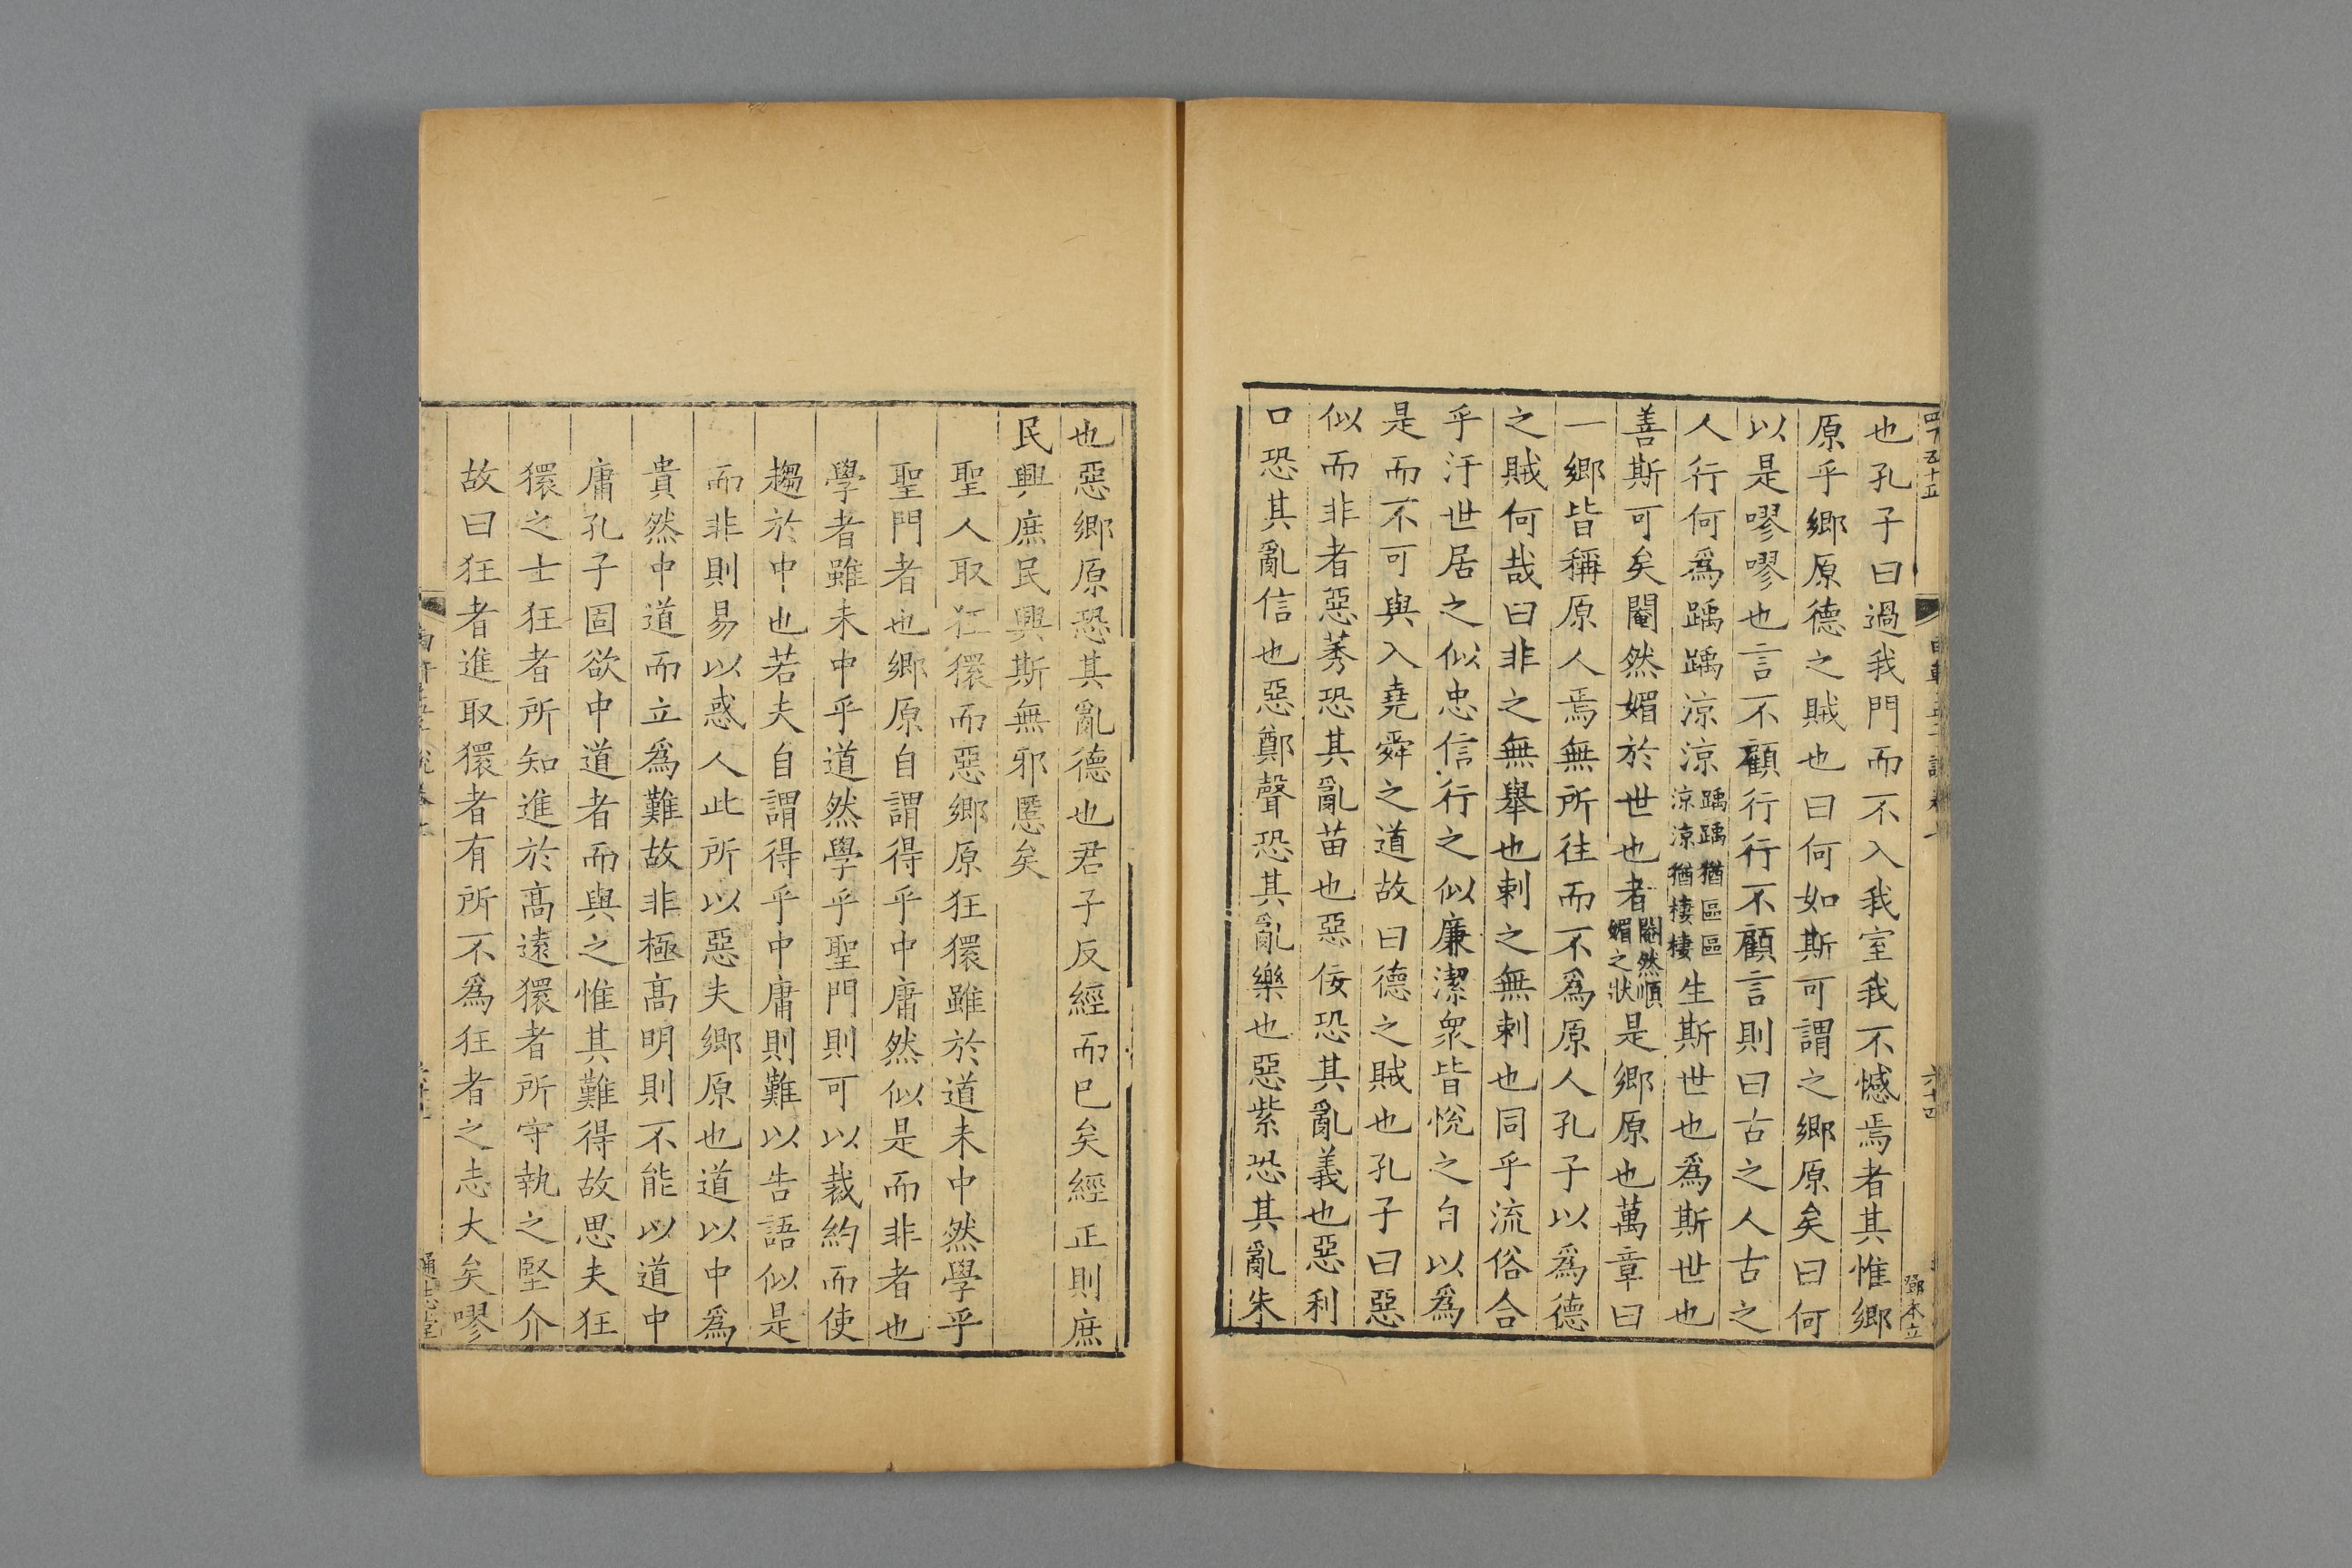 四百五十五
鄧本立
也孔子曰過我門而不入我室我不憾焉者其惟鄉
原乎鄉原德之賊也曰何如斯可謂之鄉原矣曰何
以是嘐嘐也言不顧行行不顧言則曰古之人古之
人行何爲踽踽涼涼踽踽猶區區涼涼猶棲棲生斯世也爲斯世也
善斯可矣閹然媚於世也者閹然順媚之狀是鄉原也萬章曰
一鄉皆稱原人焉無所往而不爲原人孔子以爲德
之賊何哉曰非之無舉也刺之無刺也同乎流俗合
乎汙世居之似忠信行之似廉潔衆皆悅之自以爲
是而不可與入堯舜之道故曰德之賊也孔子曰惡
似而非者惡莠恐其亂苗也惡佞恐其亂義也惡利
口恐其亂信也惡鄭聲恐其亂樂也惡紫恐其亂朱
也惡鄉原恐其亂德也君子反經而已矣經正則庶
民興庶民興斯無邪慝矣
聖人取狂獧而惡鄉原狂獧雖於道未中然學乎
聖門者也鄉原自謂得乎中庸然似是而非者也
學者雖未中乎道然學乎聖門則可以裁約而使
趨於中也若夫自謂得乎中庸則難以告語似是
而非則易以惑人此所以惡夫鄉原也道以中爲
貴然中道而立爲難故非極高明則不能以道中
庸孔子固欲中道者而與之惟其難得故思夫狂
獧之士狂者所知進於高遠獧者所守執之堅介
故曰狂者進取獧者有所不爲狂者之志大矣嘐
通志堂